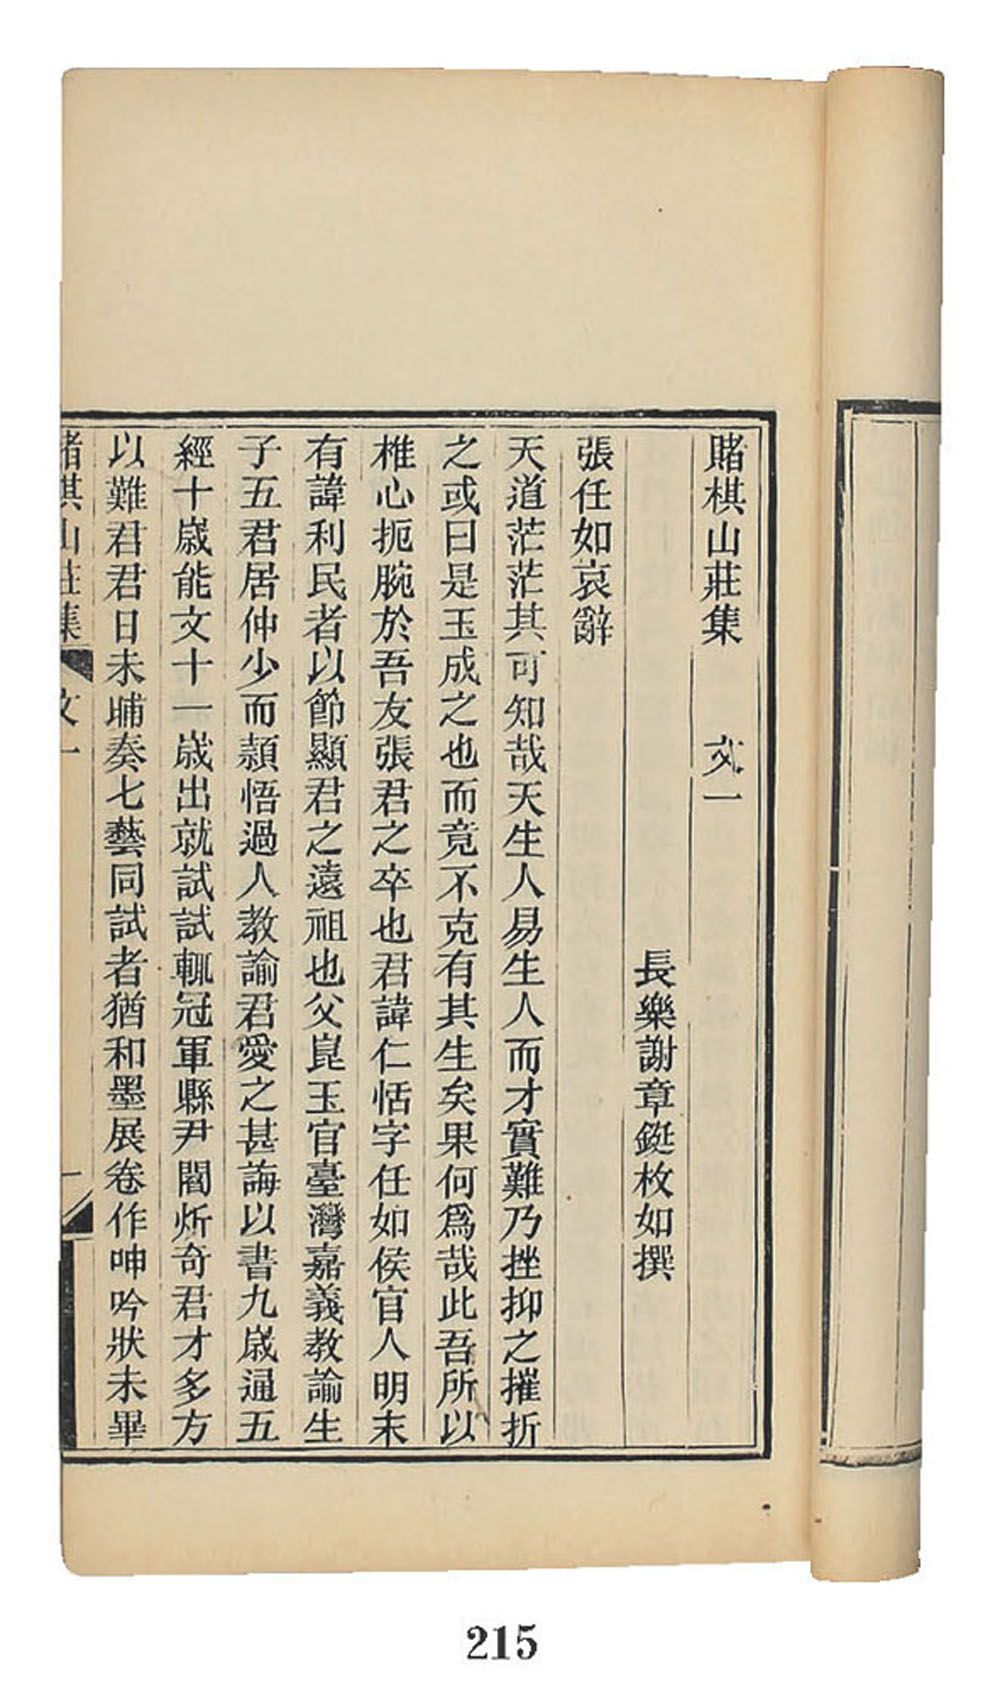 賭棋山莊集 文一
長樂謝章鋌枚如撰
張任如哀辭
天道茫茫其可知哉天生人易生人而才實難乃挫抑之摧折
之或曰是玉成之也而竟不克有其生矣果何爲哉此吾所以
椎心扼腕於吾友張君之卒也君諱仁恬字任如侯官人明末
有諱利民者以節顯君之遠祖也父崑玉官臺灣嘉義教諭生
子五君居仲少而頴悟過人教諭君愛之甚誨以書九歲通五
經十歲能文十一歲出就試試輒冠軍縣尹閻炘奇君才多方
以難君君日未晡奏七藝同試者猶和墨展卷作呻吟狀未畢
賭棋山莊集 文一
215